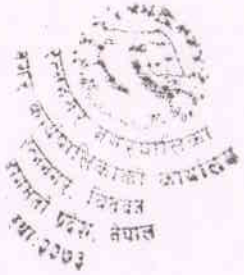 रत्ननगर नगरपालिका
नगर कार्यपालिकाको कार्यालय
रत्ननगर, चितवन
बागमती प्रदेश, नेपाल
स्था.